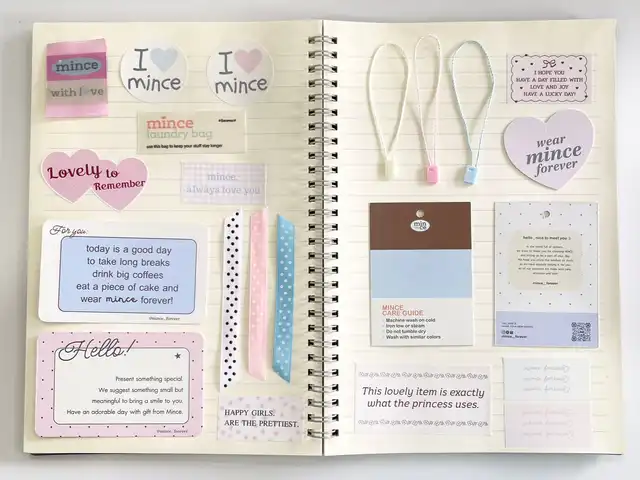 mince
with love
I
mince
I
mince
mince
laundry bag
use this bag to keep your stuff stay longer
Lovely to
Remember
mince,
always love you
For you
today is a good day
to take long breaks
drink big coffees
eat a piece of cake and
wear mince forever!
@mince_forever
Hello!
Present something special.
We suggest something small but
meaningful to bring a smile to you.
Have an adorable day with gift from Mince.
@mince_forever
HAPPY GIRLS.
ARE THE PRETTIEST.
I HOPE YOU
HAVE A DAY FILLED WITH
LOVE AND JOY
HAVE A LUCKY DAY!
wear
mince
forever
min
ce
MINCE
CARE GUIDE
Machine wash on cold
Iron low or steam
Do not tumble dry
Wash with similar colors
hello , nice to meet you :)
This lovely item is exactly
what the princess uses.